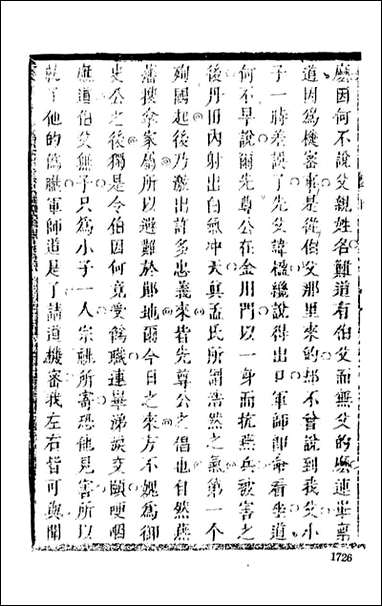 麽因何不說父親姓名難道有伯父而無父的麽連華稟
道因爲機密事是從伯父那里來的却不曾說到我父小
子一時差誤了先父諱機纔說得出口軍師卽命看坐道
何不早說爾先尊公在金川門以一身而抗燕兵被害之
後丹田內射出白氣冲天眞孟氏所謂浩然之氣第一个
殉國起後乃激出許多忠義來皆先尊公之倡也自然燕
藩搜拿家屬所以避難於鄖地爾今日之來方不媿爲御
史公之後獨是令伯因何竟受僞職連華涕淚交頤哽咽
應道伯父無子只爲小子一人宗祧所寄恐他見害所以
就了他的僞職軍師道是了請道機密我左右皆可與聞
1726